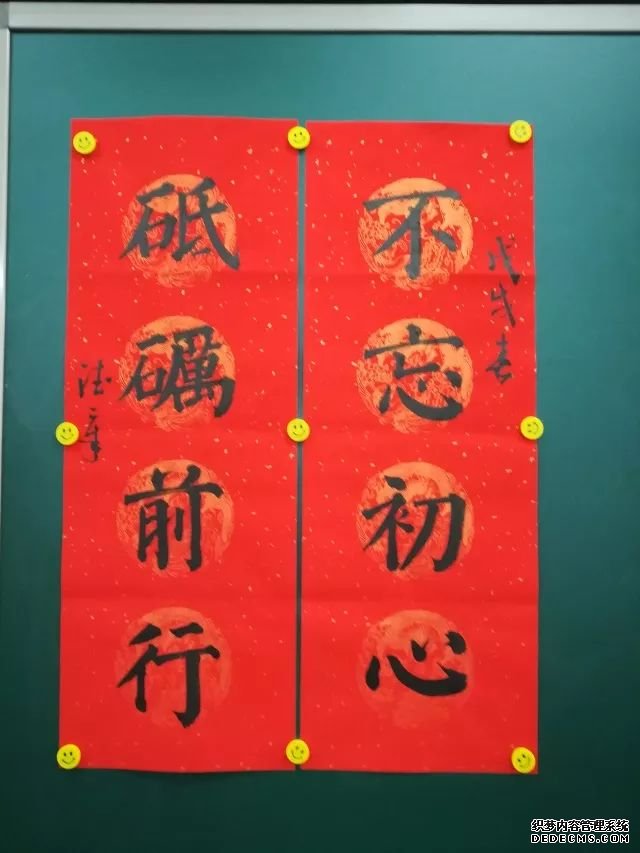 戊戌春
不忘初心
砥礪前行
德章
织梦内容管理系统
DEDECMS.COM